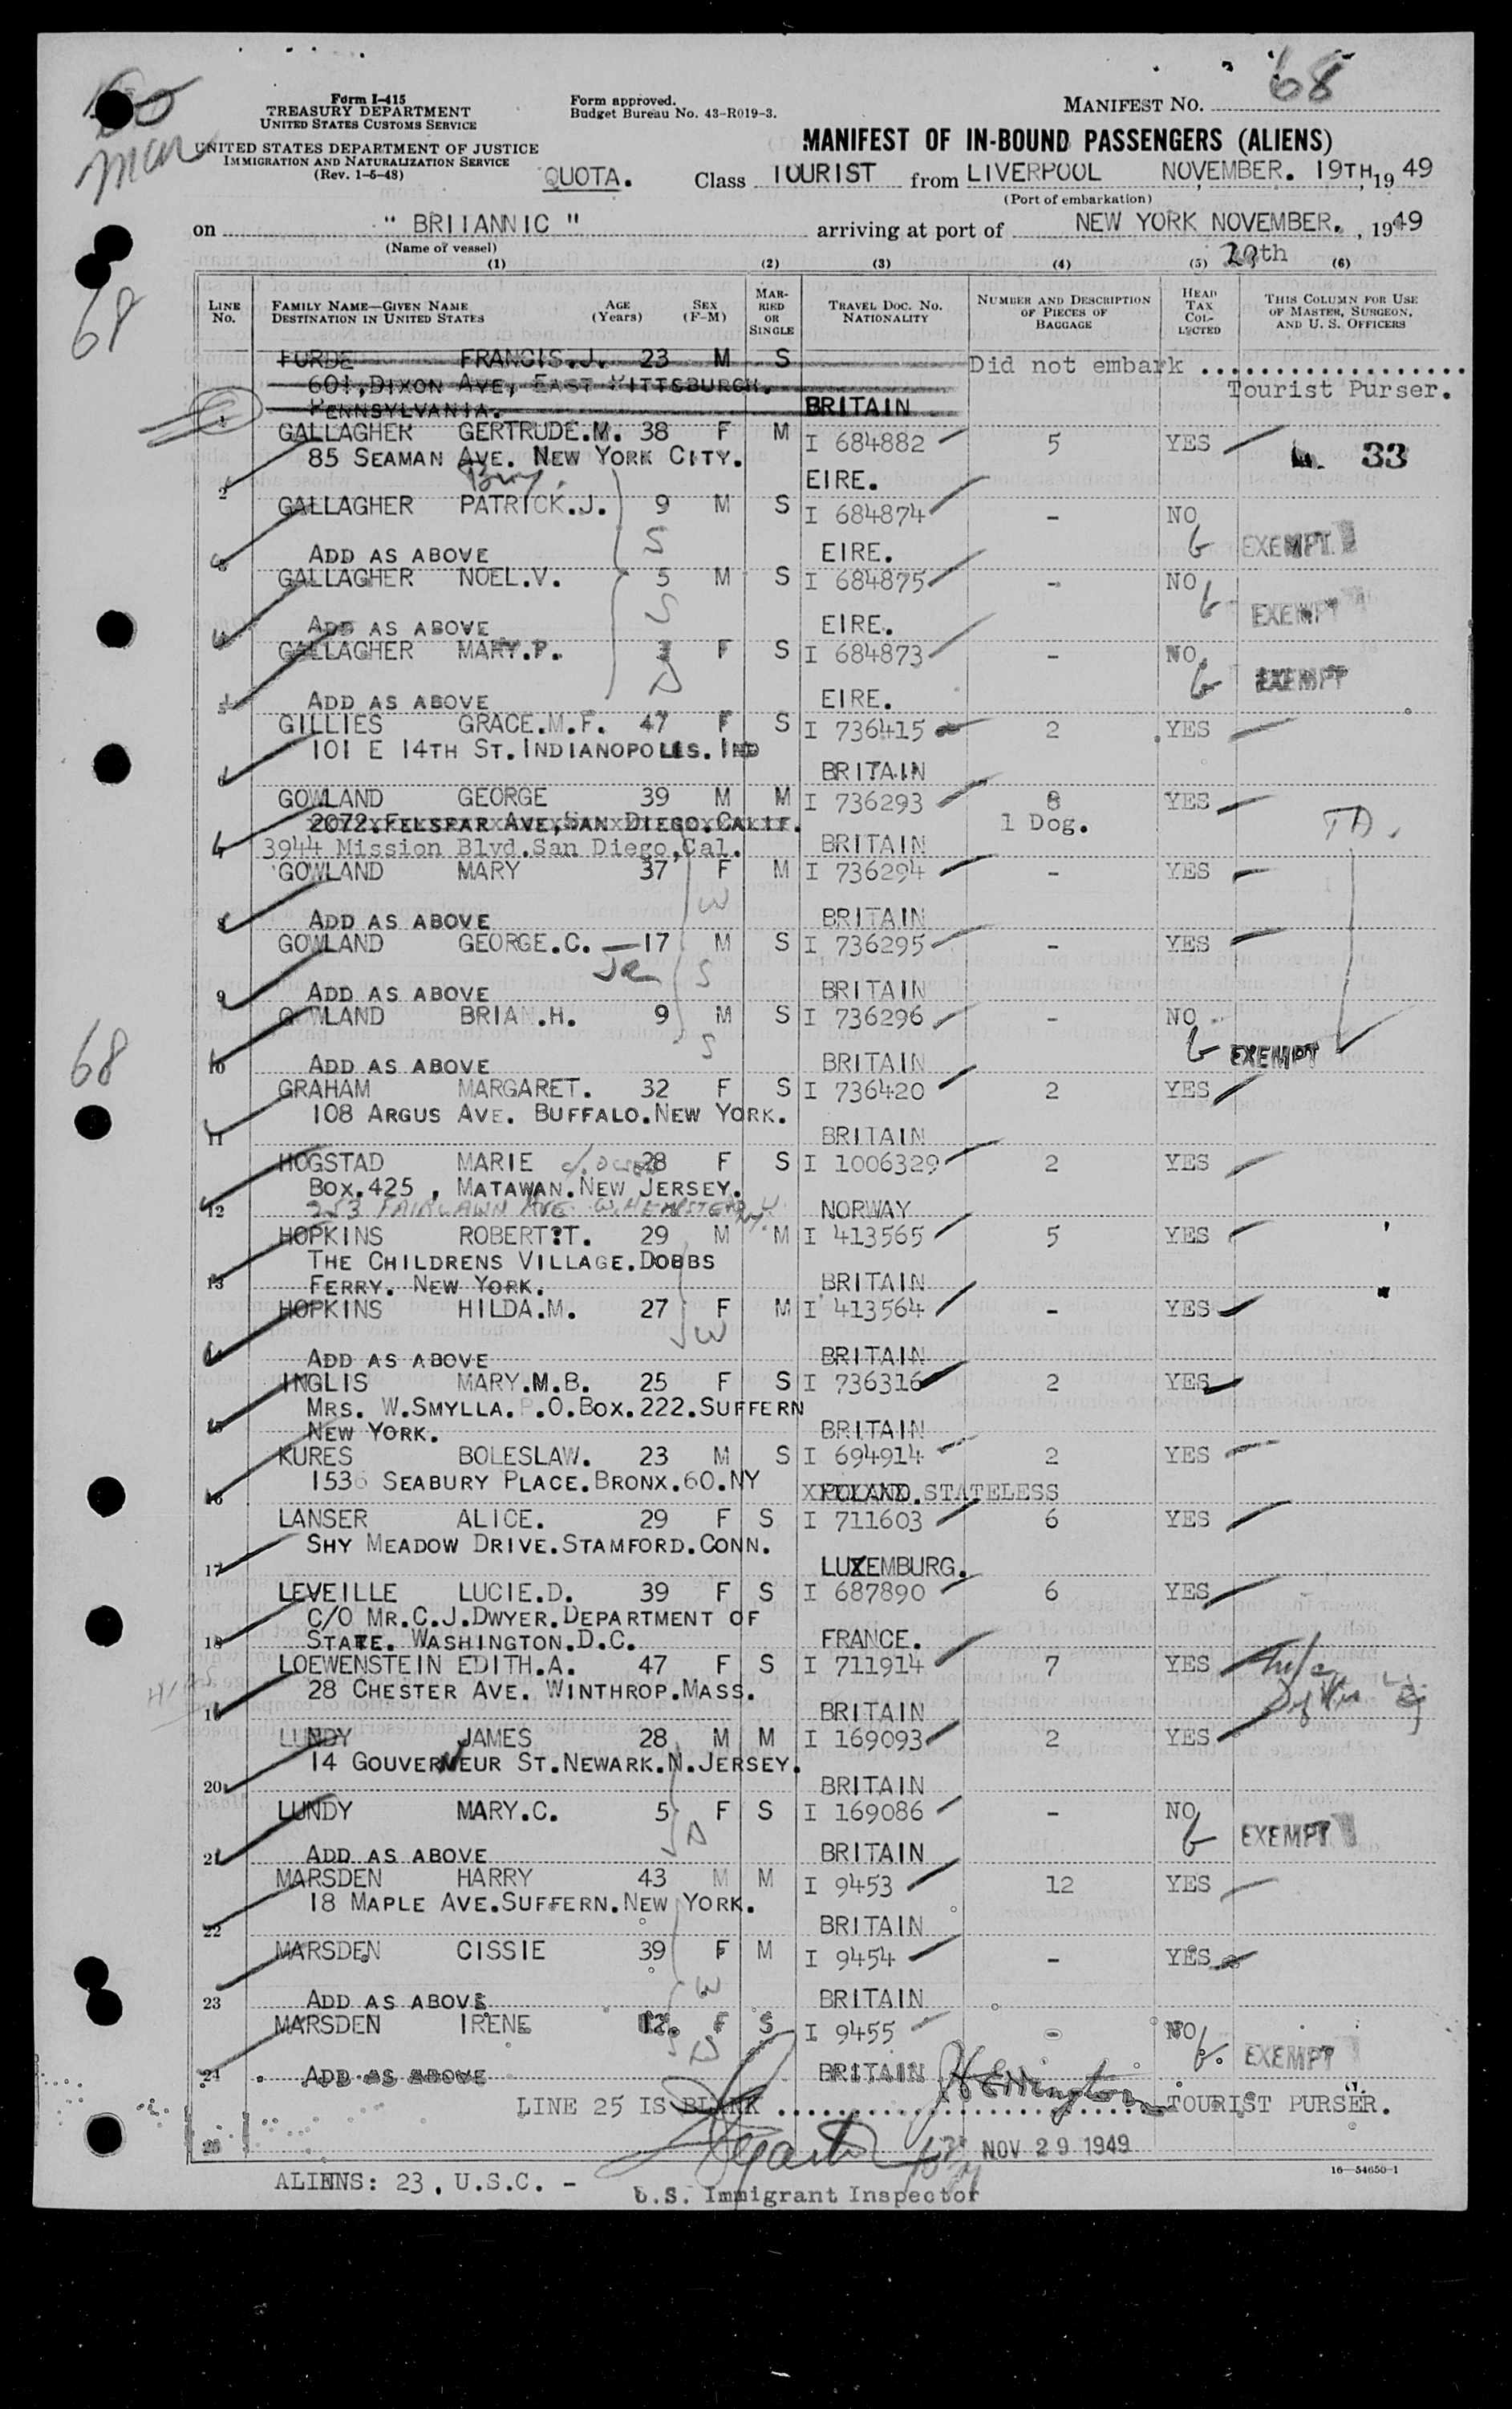 Form I-415
TREASURY DEPARTMENT
UNITED STATES CUSTOMS SERVICE
UNITED STATES DEPARTMENT OF JUSTICE
IMMIGRATION AND NATURALIZATION SERVICE
(Rev. 1-5-48)
Form approved.
Budget Bureau No. 43-R019-3.
MANIFEST NO. 68
MANIFEST OF IN-BOUND PASSENGERS (ALIENS)
QUOTA. Class TOURIST from LIVERPOOL NOVEMBER. 19TH, 1949
(Port of embarkation)
on "BRITANNIC" arriving at port of NEW YORK NOVEMBER. , 1949
(Name of vessel) 29th
(1) (2) (3) (4) (5) (6)
LINE NO. FAMILY NAME—GIVEN NAME DESTINATION IN UNITED STATES AGE (Years) SEX (F-M) MARRIED OR SINGLE TRAVEL DOC. NO. NATIONALITY NUMBER AND DESCRIPTION OF PIECES OF BAGGAGE HEAD TAX COLLECTED THIS COLUMN FOR USE OF MASTER, SURGEON, AND U. S. OFFICERS
68
FORDE FRANCIS.J. 23 M S Did not embark ..................
601,DIXON AVE, EAST PITTSBURGH. Tourist Purser.
PENNSYLVANIA. BRITAIN
1 GALLAGHER GERTRUDE.M. 38 F M I 684882 5 YES 33
85 SEAMAN AVE. NEW YORK CITY. EIRE.
2 GALLAGHER PATRICK.J. 9 M S I 684874 - NO
S EXEMPT
3 ADD AS ABOVE EIRE.
GALLAGHER NOEL.V. 5 M S I 684875 - NO
S EXEMPT
4 ADD AS ABOVE EIRE.
GALLAGHER MARY.P. F S I 684873 - NO
D EXEMPT
5 ADD AS ABOVE EIRE.
GILLIES GRACE.M.F. 47 F S I 736415 2 YES
101 E 14TH ST.INDIANOPOLIS.IND
6 BRITAIN
GOWLAND GEORGE 39 M M I 736293 8 YES
2072.FELSPAR AVE,SAN DIEGO.CALIF. 1 Dog. TD.
7 3944 Mission Blvd.San Diego,Cal. BRITAIN
GOWLAND MARY 37 F M I 736294 - YES
W
8 ADD AS ABOVE BRITAIN
GOWLAND GEORGE.C. 17 M S I 736295 - YES
Jr S
9 ADD AS ABOVE BRITAIN
GOWLAND BRIAN.H. 9 M S I 736296 - NO
S EXEMPT
68
10 ADD AS ABOVE BRITAIN
GRAHAM MARGARET. 32 F S I 736420 2 YES
108 ARGUS AVE. BUFFALO.NEW YORK.
11 BRITAIN
HOGSTAD MARIE 28 F S I 1006329 2 YES
BOX.425 , MATAWAN.NEW JERSEY.
12 253 FAIRLAWN AVE W.HEMPSTEAD NORWAY
HOPKINS ROBERT.T. 29 M M I 413565 5 YES
THE CHILDRENS VILLAGE.DOBBS
13 FERRY. NEW YORK. BRITAIN
HOPKINS HILDA.M. 27 F M I 413564 - YES
W
14 ADD AS ABOVE BRITAIN
INGLIS MARY.M.B. 25 F S I 736316 2 YES
MRS. W.SMYLLA.P.O.BOX.222.SUFFERN
15 NEW YORK. BRITAIN
KURES BOLESLAW. 23 M S I 694914 2 YES
1536 SEABURY PLACE.BRONX.60.NY
16 POLAND. STATELESS
LANSER ALICE. 29 F S I 711603 6 YES
SHY MEADOW DRIVE.STAMFORD.CONN.
17 LUXEMBURG.
LEVEILLE LUCIE.D. 39 F S I 687890 6 YES
C/O MR.C.J.DWYER.DEPARTMENT OF
18 STATE. WASHINGTON.D.C. FRANCE.
LOEWENSTEIN EDITH.A. 47 F S I 711914 7 YES
28 CHESTER AVE. WINTHROP.MASS.
19 BRITAIN
LUNDY JAMES 28 M M I 169093 2 YES
14 GOUVERNEUR ST.NEWARK.N.JERSEY.
20 BRITAIN
LUNDY MARY.C. 5 F S I 169086 - NO
D EXEMPT
21 ADD AS ABOVE BRITAIN
MARSDEN HARRY 43 M M I 9453 12 YES
18 MAPLE AVE.SUFFERN.NEW YORK.
22 BRITAIN
MARSDEN CISSIE 39 F M I 9454 - YES
W
23 ADD AS ABOVE BRITAIN
MARSDEN IRENE 12. F S I 9455 - NO
D EXEMPT
24 ADD AS ABOVE BRITAIN
LINE 25 IS BLANK .......................... TOURIST PURSER.
25 NOV 29 1949
16—54650-1
ALIENS: 23. U.S.C. -
U.S. Immigrant Inspector